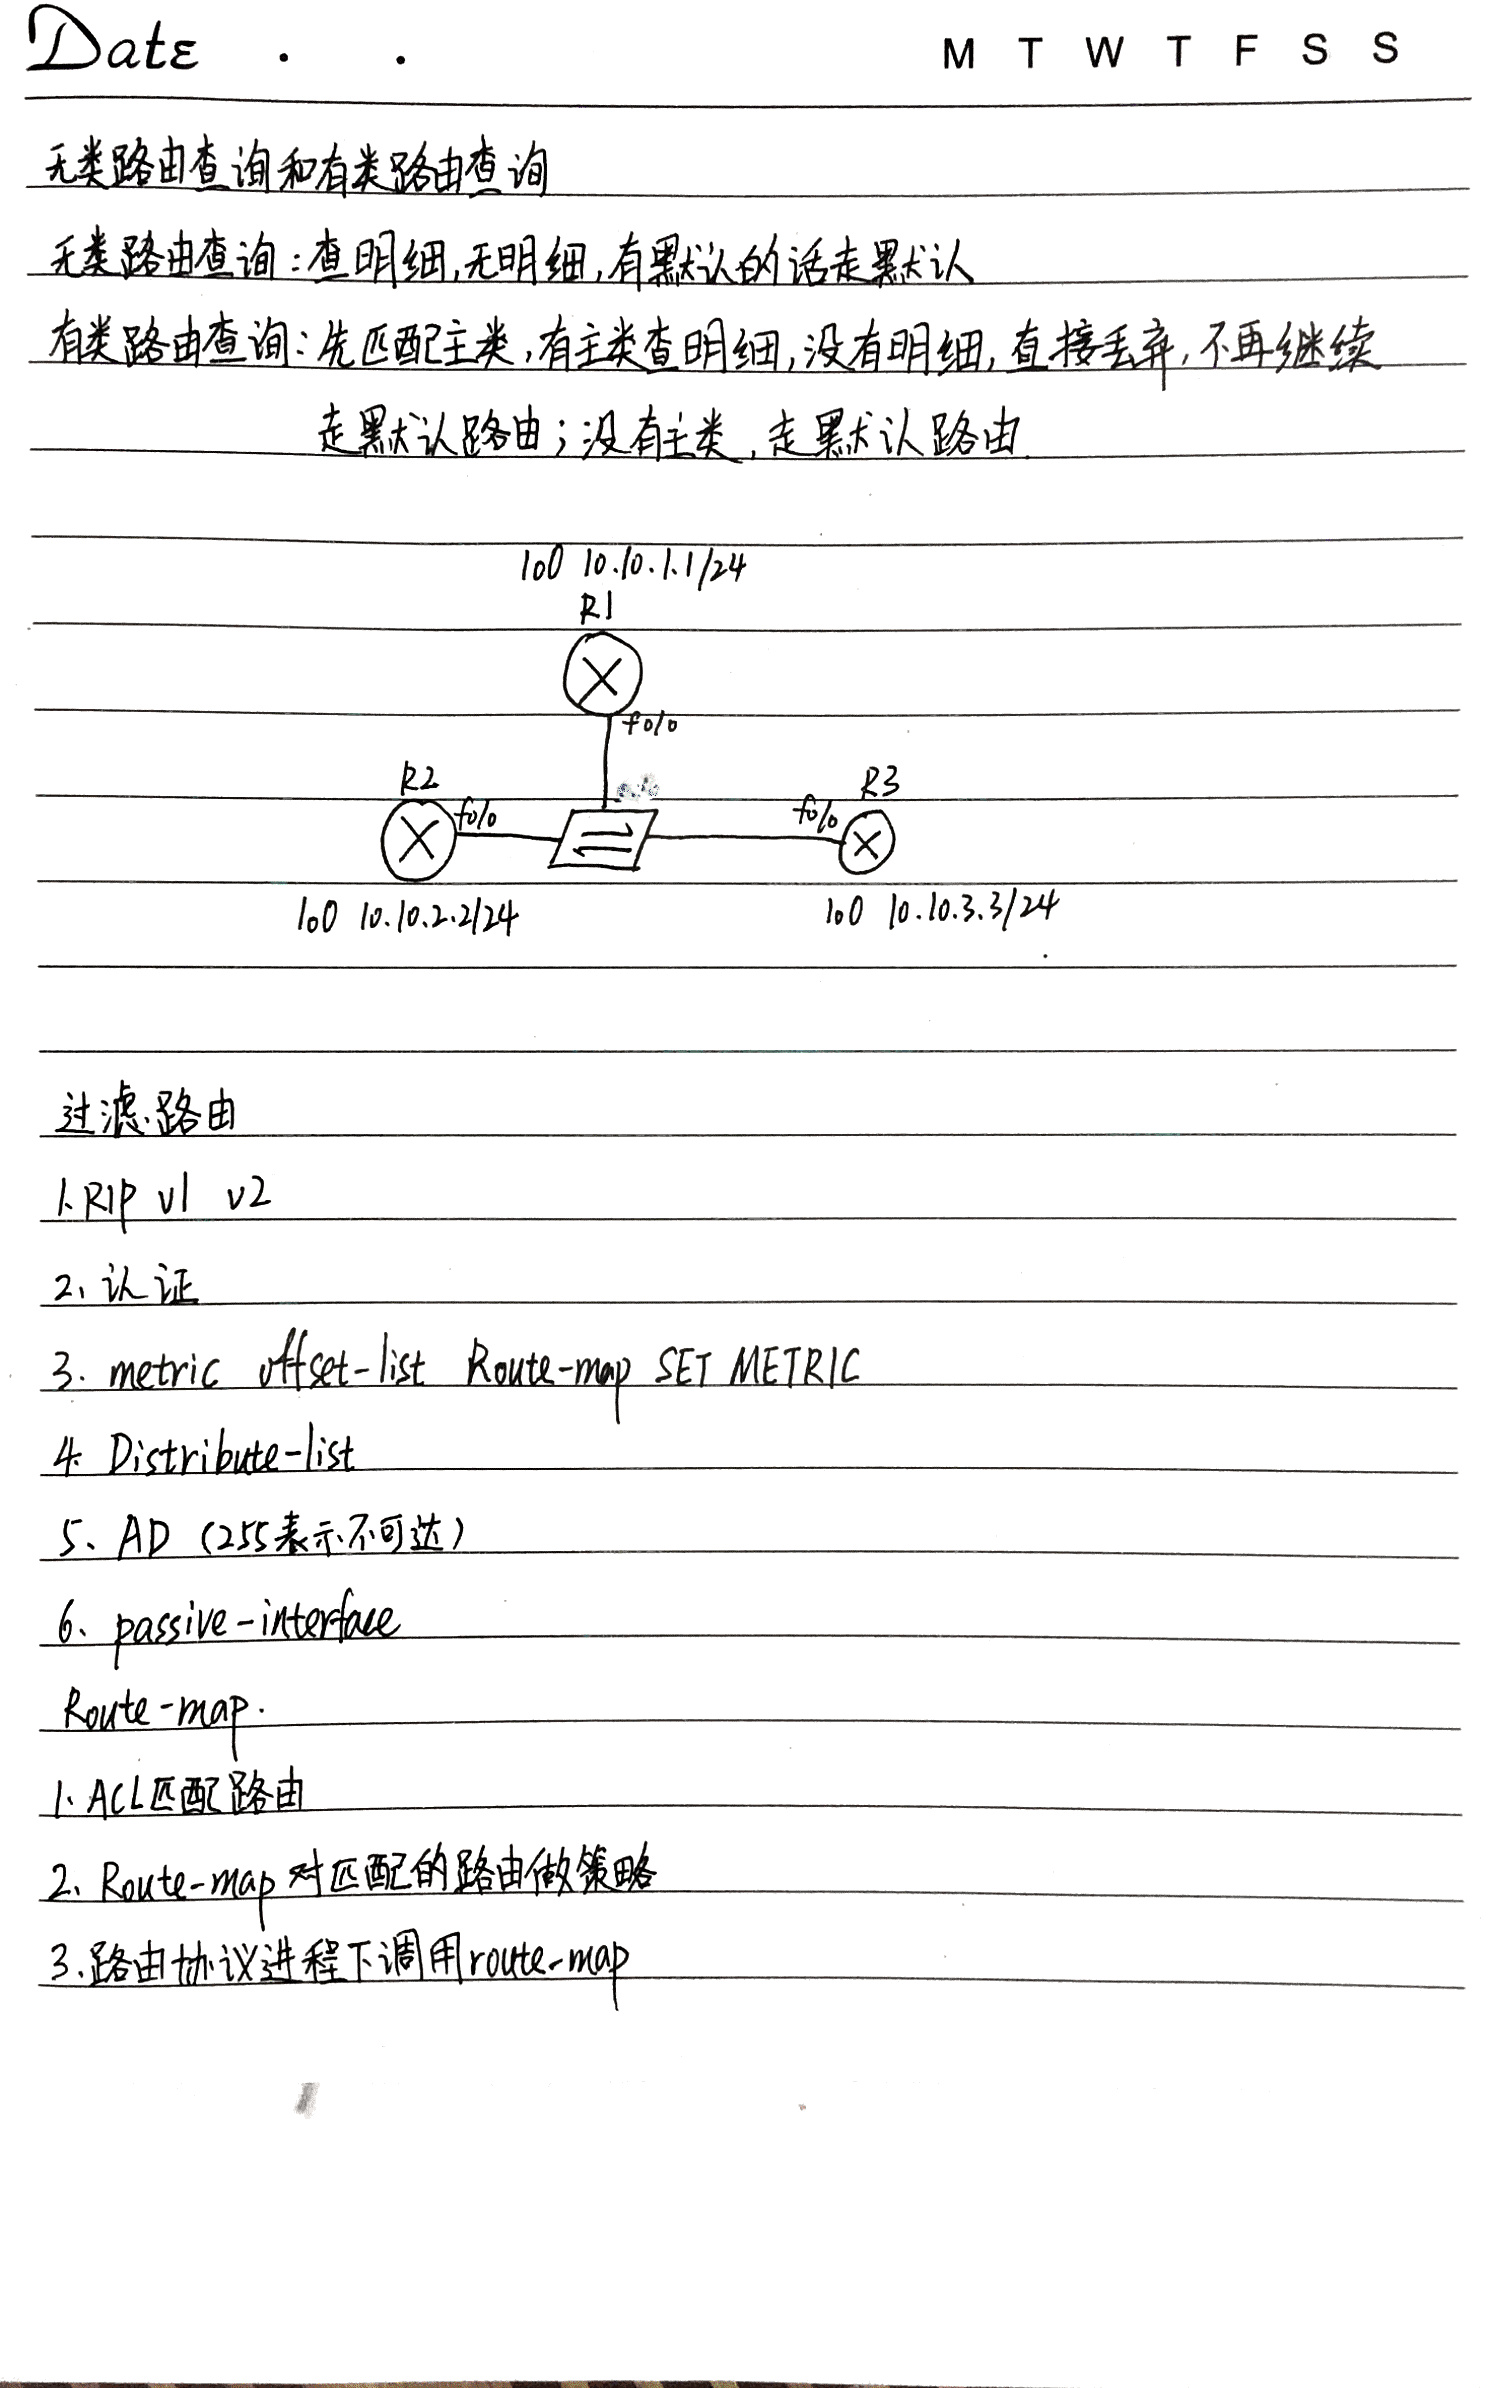 Date . .
M T W T F S S
无类路由查询和有类路由查询
无类路由查询:查明细,无明细,有默认的话走默认
有类路由查询:先匹配主类,有主类查明细,没有明细,直接丢弃,不再继续
走默认路由;没有主类,走默认路由.
lo0 10.10.1.1/24
R1
f0/0
R2
R3
f0/0
f0/0
lo0 10.10.2.2/24
lo0 10.10.3.3/24
过滤路由
1、RIP v1 v2
2、认证
3. metric offset-list Route-map SET METRIC
4. Distribute-list
5、AD (255表示不可达)
6、passive-interface
Route-map.
1、ACL匹配路由
2、Route-map 对匹配的路由做策略
3、路由协议进程下调用route-map